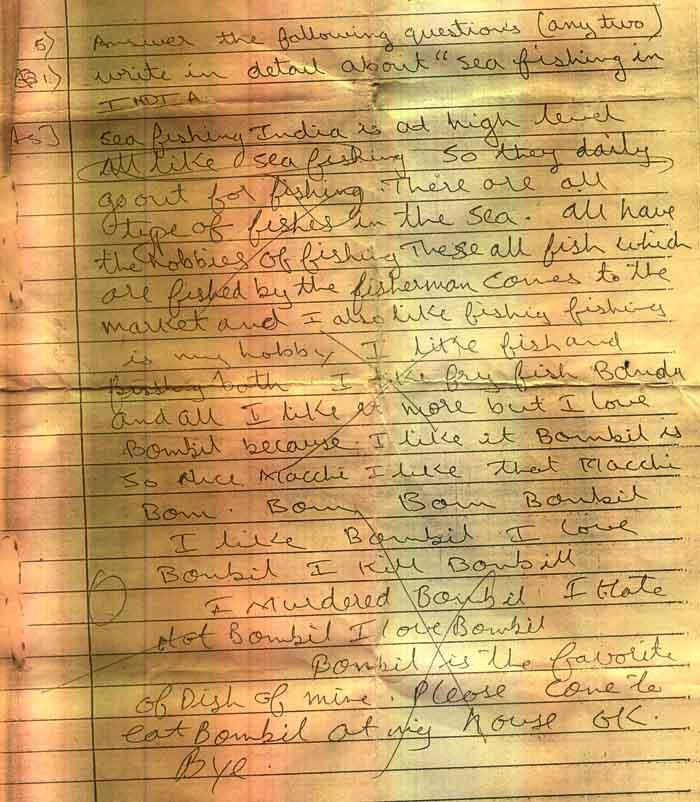 5) Answer the following questions (any two)
Q1) write in detail about "sea fishing in
INDIA
As] sea fishing India is at high level
All like sea fishing so they daily
go out for fishing. There are all
type of fishes in the sea. All have
the hobbies of fishing These all fish which
are fished by the fisherman comes to the
market and I also like fishig fishing
is my hobby I like fish and
fisthig both I like fry fish Banda
and all I like it more but I love
Bombil because I like it Bombil is
So Nice Macchi I like that Macchi
Bom. Bom Bom Bombil
I like Bombil I love
Bombil I Kill Bombill
I Murdered Bombil I Hate
Not Bombil I love Bombil
Bombil is the favorite
of Dish of mine. Please come to
eat Bombil at my house OK.
Bye.